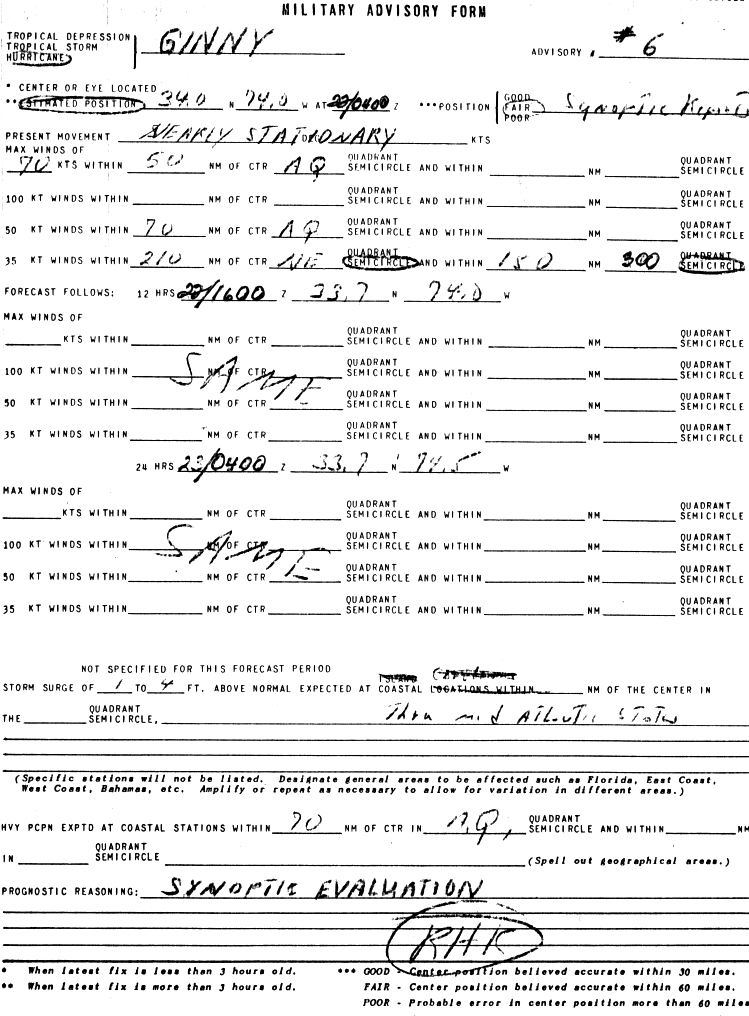 MILITARY ADVISORY FORM
TROPICAL DEPRESSION
TROPICAL STORM
HURRICANE
GINNY
ADVISORY # 6
* CENTER OR EYE LOCATED
**ESTIMATED POSITION 34.0 N 74.0 W AT 22/0400 Z ***POSITION GOOD FAIR POOR Synoptic Reports
PRESENT MOVEMENT NEARLY STATIONARY KTS
MAX WINDS OF
70 KTS WITHIN 50 NM OF CTR AQ QUADRANT SEMICIRCLE AND WITHIN NM QUADRANT SEMICIRCLE
100 KT WINDS WITHIN NM OF CTR QUADRANT SEMICIRCLE AND WITHIN NM QUADRANT SEMICIRCLE
50 KT WINDS WITHIN 70 NM OF CTR AQ QUADRANT SEMICIRCLE AND WITHIN NM QUADRANT SEMICIRCLE
35 KT WINDS WITHIN 210 NM OF CTR NE QUADRANT SEMICIRCLE AND WITHIN 150 NM QUADRANT SEMICIRCLE
FORECAST FOLLOWS: 12 HRS 22/1600 Z 33.7 N 74.0 W
MAX WINDS OF
KTS WITHIN NM OF CTR QUADRANT SEMICIRCLE AND WITHIN NM QUADRANT SEMICIRCLE
100 KT WINDS WITHIN NM OF CTR QUADRANT SEMICIRCLE AND WITHIN NM QUADRANT SEMICIRCLE
SAME
50 KT WINDS WITHIN NM OF CTR QUADRANT SEMICIRCLE AND WITHIN NM QUADRANT SEMICIRCLE
35 KT WINDS WITHIN NM OF CTR QUADRANT SEMICIRCLE AND WITHIN NM QUADRANT SEMICIRCLE
24 HRS 23/0400 Z 33.7 N 74.5 W
MAX WINDS OF
KTS WITHIN NM OF CTR QUADRANT SEMICIRCLE AND WITHIN NM QUADRANT SEMICIRCLE
100 KT WINDS WITHIN NM OF CTR QUADRANT SEMICIRCLE AND WITHIN NM QUADRANT SEMICIRCLE
SAME
50 KT WINDS WITHIN NM OF CTR QUADRANT SEMICIRCLE AND WITHIN NM QUADRANT SEMICIRCLE
35 KT WINDS WITHIN NM OF CTR QUADRANT SEMICIRCLE AND WITHIN NM QUADRANT SEMICIRCLE
NOT SPECIFIED FOR THIS FORECAST PERIOD
STORM SURGE OF 1 TO 4 FT. ABOVE NORMAL EXPECTED AT COASTAL LOCATIONS WITHIN NM OF THE CENTER IN
THE QUADRANT SEMICIRCLE, Thru mid Atlantic States
(Specific stations will not be listed. Designate general areas to be affected such as Florida, East Coast,
West Coast, Bahamas, etc. Amplify or repeat as necessary to allow for variation in different areas.)
HVY PCPN EXPTD AT COASTAL STATIONS WITHIN 70 NM OF CTR IN A.Q, QUADRANT SEMICIRCLE AND WITHIN NM
IN QUADRANT SEMICIRCLE (Spell out geographical areas.)
PROGNOSTIC REASONING: SYNOPTIC EVALUATION
RHK
* When latest fix is less than 3 hours old. *** GOOD - Center position believed accurate within 30 miles.
** When latest fix is more than 3 hours old. FAIR - Center position believed accurate within 60 miles.
POOR - Probable error in center position more than 60 miles